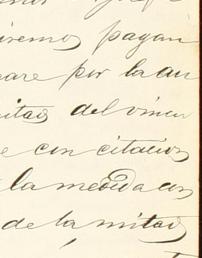 iremos pagan
nare por la au
mitad del vincu
e con citacion
la medida con
de la mitad